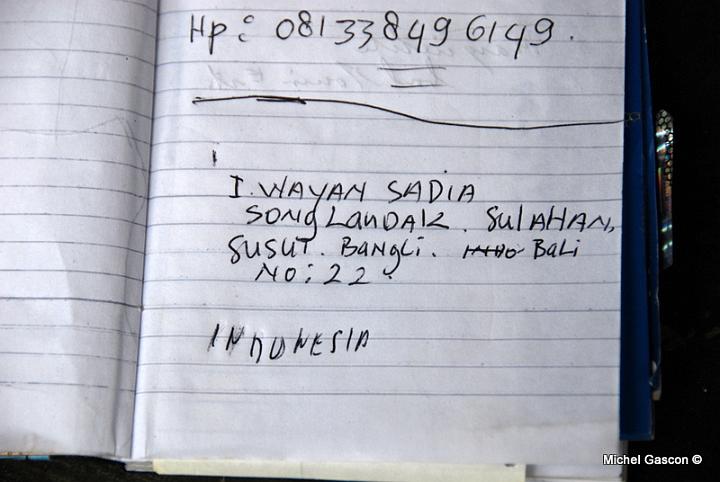 Hp: 081338496149.
I. WAYAN SADIA
SONG LANDAK. SULAHAN,
SUSUT. BANGLI. Bali
NO: 22.
INDONESIA
Michel Gascon ©